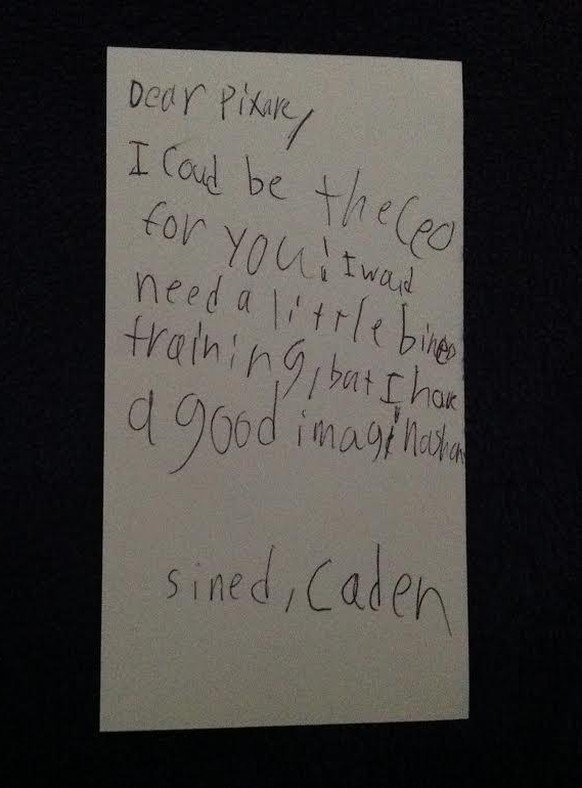 Dear Pixare,
I Coud be the Ceo
for you! I woud
need a little bines
training, but I have
a good imaginashan
sined, Caden